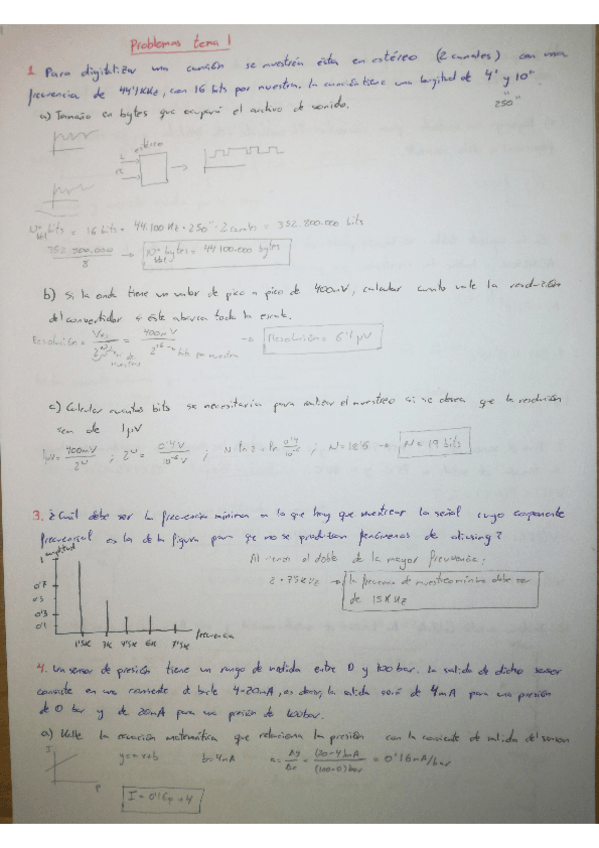 Problemas tema 1
1. Para digitalizar una canción se muestréa ésta en estéreo (2 canales) con una
frecuencia de 44'1KHz, con 16 bits por muestra. La canción tiene una longitud de 4' y 10''.
250''
a) Tamaño en bytes que ocupará el archivo de sonido.
estéreo
L
R
Nº bits = 16 bits · 44.100 Hz · 250'' · 2 canales = 352.800.000 bits
352.800.000 / 8 → Nº bytes = 44.100.000 bytes
b) Si la onda tiene un valor de pico a pico de 400mV, calcular cuanto vale la resolución
del convertidor si éste abarca toda la escala.
Resolución = = 400mV / 2^16 → Resolución = 6'1 μV
c) Calcular cuantos bits se necesitaría para realizar el muestreo si se desea que la resolución
sea de 1μV
1μV = 400mV / 2^N ; 2^N = 0'4V / 10^-6 V ; N · ln 2 = ln 0'4 / 10^-6 ; N = 18'6 → N = 19 bits
3. ¿Cuál debe ser la frecuencia mínima a la que hay que muestrear la señal cuyo componente
frecuencial es la de la figura para que no se produzcan fenómenos de aliasing?
amplitud
Al menos el doble de la mayor frecuencia:
1
2 · 7'5KHz → La frecuencia de muestreo mínima debe ser
de 15KHz
0'7
0'5
0'3
0'1
frecuencia
1'5K 3K 4'5K 6K 7'5K
4. Un sensor de presión tiene un rango de medida entre 0 y 100 bar. La salida de dicho sensor
consiste en una corriente de bucle 4-20mA, es decir, la salida será de 4mA para una presión
de 0 bar y de 20mA para una presión de 100bar.
a) Halle la ecuación matemática que relaciona la presión con la corriente de salida del sensor
I
y = ax+b b=4mA a = Δy / Δx = (20-4)mA / (100-0)bar = 0'16mA/bar
P
I = 0'16p + 4